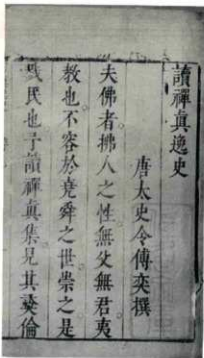 讀禪真逸史
唐太史令傅奕撰
夫佛者拂人之性無父無君夷
教也不容於堯舜之世崇之是
戮民也予讀禪真集見其議論